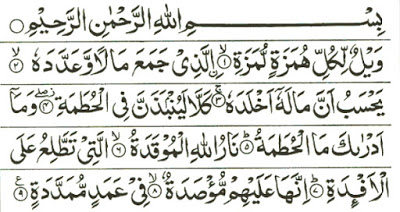 بِسْمِ اللهِ الرَّحْمٰنِ الرَّحِيْمِ ○
وَيْلٌ لِّكُلِّ هُمَزَةٍ لُّمَزَةِ ۙ﴿١﴾ اِۨلَّذِىْ جَمَعَ مَالًا وَّعَدَّدَهٗ ۙ﴿٢﴾
يَحْسَبُ اَنَّ مَالَهٗۤ اَخْلَدَهٗ ۚ﴿٣﴾ كَلَّا لَيُنْۢبَذَنَّ فِى الْحُطَمَةِ ۖ﴿٤﴾ وَمَاۤ
اَدْرٰىكَ مَا الْحُطَمَةُ ؕ﴿٥﴾ نَارُ اللهِ الْمُوْقَدَةُ ۙ﴿٦﴾ الَّتِىْ تَطَّلِعُ عَلَى
الْاَفْـِٕدَةِ ؕ﴿٧﴾ اِنَّهَا عَلَيْهِمْ مُّؤْصَدَةٌ ۙ﴿٨﴾ فِىْ عَمَدٍ مُّمَدَّدَةٍ ﴿٩﴾ ع